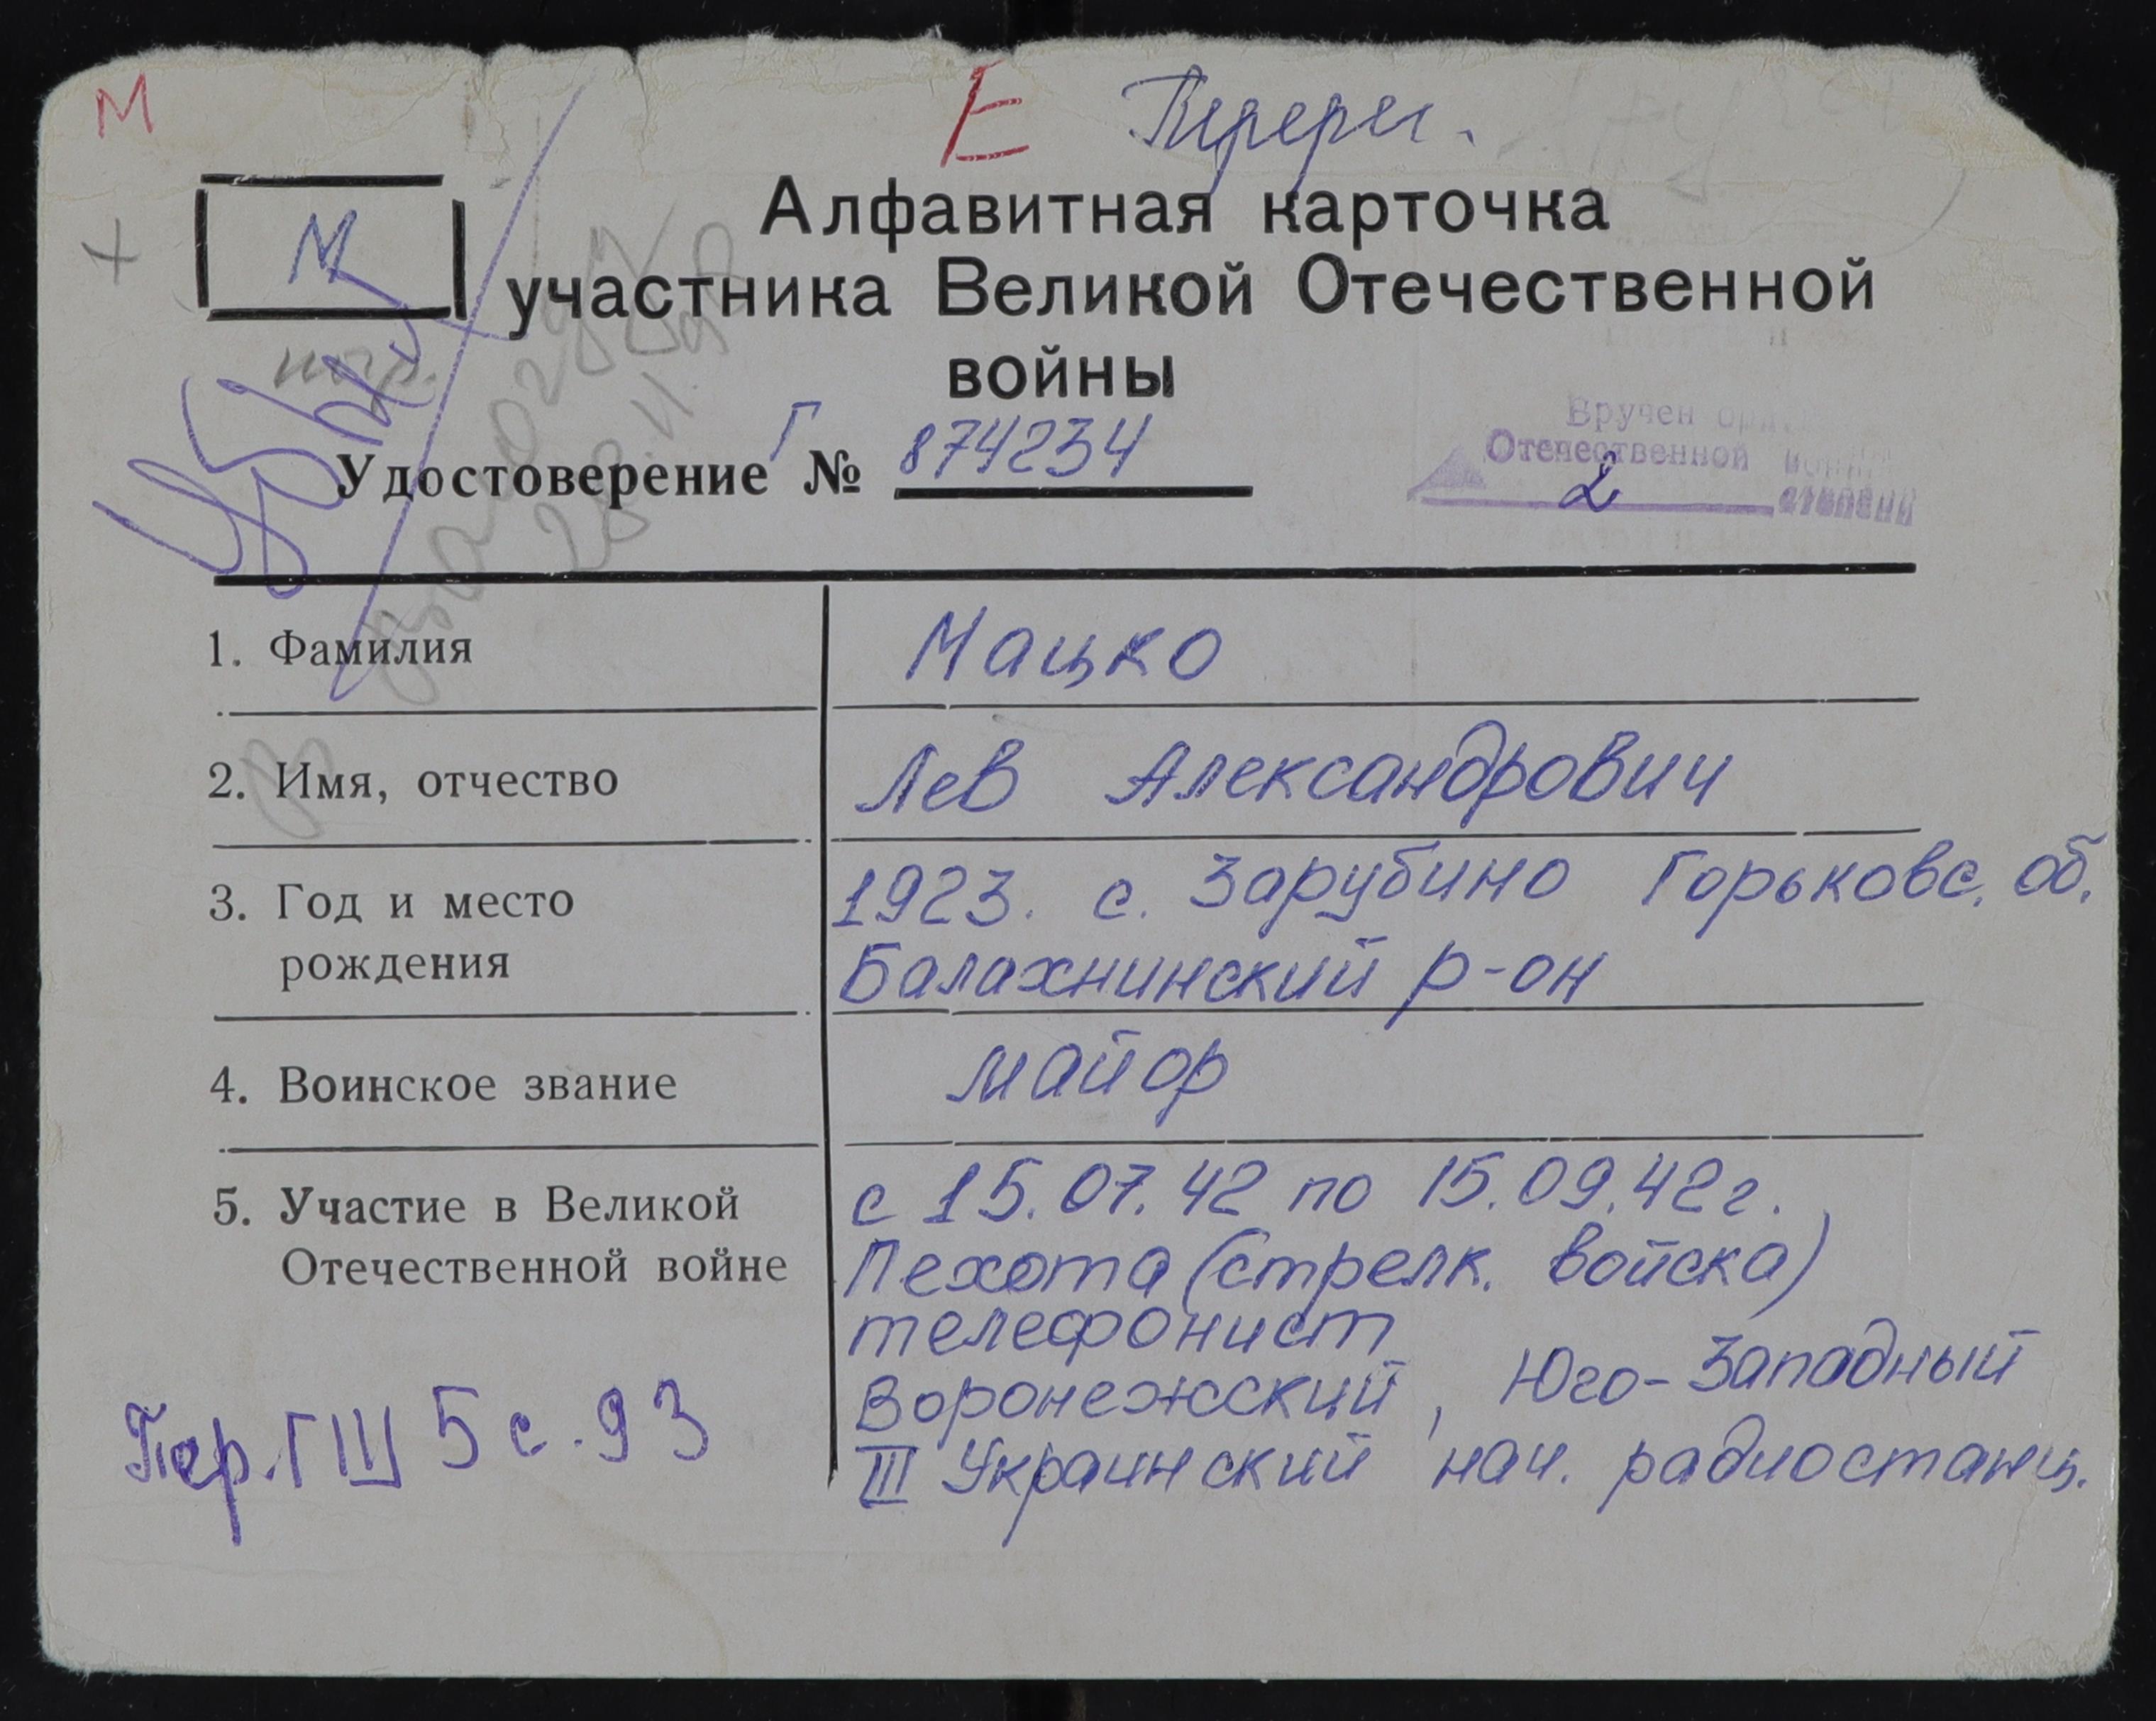 М
Е Перерег.
М
+
Алфавитная карточка
участника Великой Отечественной
войны
Убыл
Удостоверение Г № 874234
Вручен
Отечественной
2 степени
1. Фамилия Мацко
2. Имя, отчество Лев Александрович
3. Год и место 1923. с. Зарубино Горьковс. об.
рождения Балахнинский р-он
4. Воинское звание майор
5. Участие в Великой с 15.07.42 по 15.09.42г.
Отечественной войне Пехота (стрелк. войска)
телефонист
Воронежский, Юго-Западный
III Украинский нач. радиостанц.
Пер. ГШ 5 с. 93